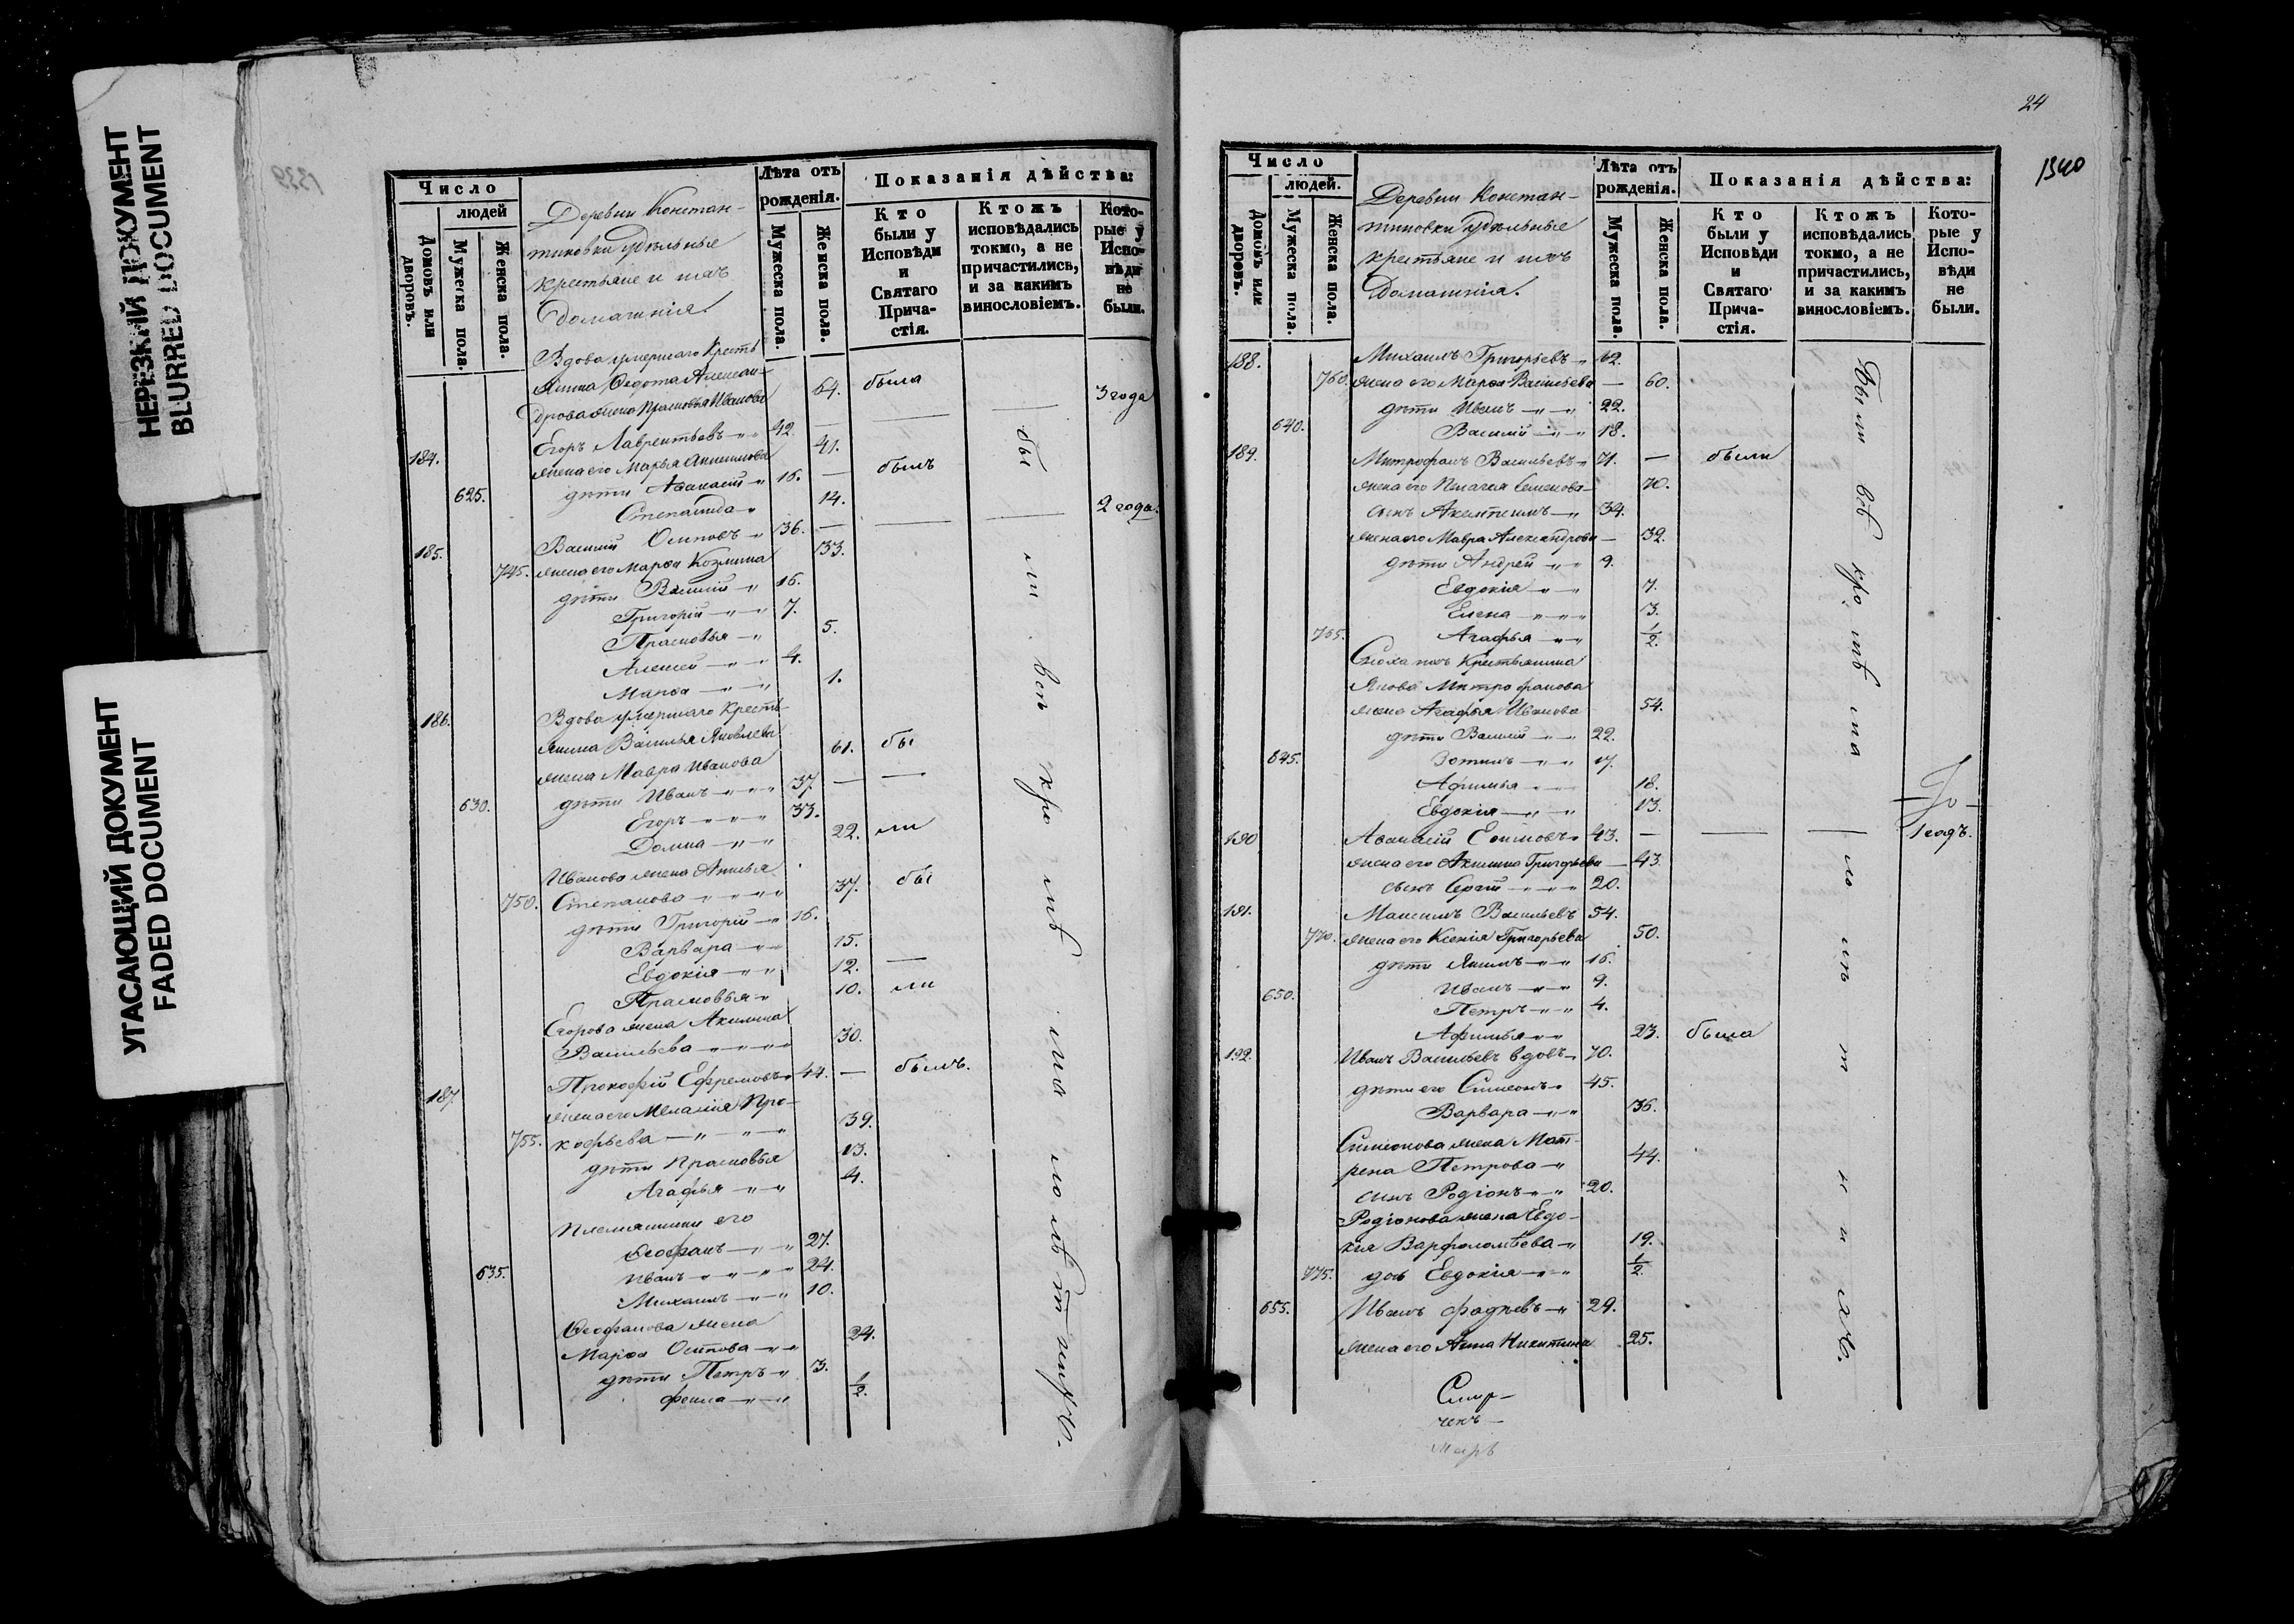 НЕРЕЗКИЙ ДОКУМЕНТ
BLURRED DOCUMENT
УГАСАЮЩИЙ ДОКУМЕНТ
FADED DOCUMENT
1339
Число
людей
Домовъ или дворовъ.
Мужеска пола.
Женска пола.
Деревни Констан-
тиновки удѣльные
крестьяне и ихъ
домашнія.
Лѣта отъ рожденія.
Мужеска пола.
Женска пола.
Показанія дѣйства:
Кто были у Исповѣди и Святаго Прича-стія.
Ктожъ исповѣдались токмо, а не причастились, и за какимъ винословіемъ.
Кото-рые у Испо-вѣди не были.
Вдова умершаго Кресть
янина Ѳедота Алексан-
дрова жена Прасковья Иванова 64. была
184. Егоръ Лаврентьевъ 42. — — 3 года
жена его Марья Анисимова 41.
625. дѣти Аѳанасій 16. — былъ
Степанида 14.
185. Василій Осиповъ 36. — — — 2 года.
745. жена его Марѳа Козмина 33.
дѣти Василій 16.
Григорій 7.
Прасковья 5.
Алексей 4.
Марѳа 1.
186. Вдова умершаго Кресть-
янина Василья Яковлева
жена Мавра Иванова 61. бы
дѣти Иванъ 37. — —
630. Егоръ 33.
Домна 22. ли
Иванова жена Анисья
750. Степанова 37. бы
дѣти Григорій 16.
Варвара 15.
Евдокія 12. —
Прасковья 10. ли
Егорова жена Акилина
Васильева 30.
187. Прокофій Ефремовъ 44. — былъ.
жена его Меланія Про-
755. кофьева 39.
дѣти Прасковья 13.
Агафья 4.
Племянники его
Ѳеофанъ 27.
635. Иванъ 24.
Михаилъ 10.
Ѳеофанова жена
Марѳа Осипова 24.
дѣти Петръ 3.
Фекла 1/2.
бы ли всѣ кро мѣ
24
1340
Число
людей.
Домовъ или дворовъ.
Мужеска пола.
Женска пола.
Деревни Констан-
тиновки удѣльные
крестьяне и ихъ
домашнія.
Лѣта отъ рожденія.
Мужеска пола.
Женска пола.
Показанія дѣйства:
Кто были у Исповѣди и Святаго Прича-стія.
Ктожъ исповѣдались токмо, а не причастились, и за какимъ винословіемъ.
Кото-рые у Испо-вѣди не были.
188. Михаилъ Григорьевъ 62.
760. жена его Марѳа Васильева — 60.
дѣти Иванъ 22.
640. Василій 18.
189. Митрофанъ Васильевъ 71. — были
жена его Пелагея Семенова 70.
сынъ 34.
жена его Мавра Александрова — 32.
дѣти Андрей 9.
Евдокія 7.
Елена 3.
765. Агафья 1/2.
Сноха ихъ Крестьянина
Якова Митрофанова
жена Агафья Иванова 54.
дѣти Василій 22.
645. Зотикъ 17.
Афимья 18.
Евдокія 13.
190 Аѳанасій Еѳимовъ 43. — — — 1 годъ.
жена его Акилина Григорьева — 43.
сынъ Сергій 20.
191. Максимъ Васильевъ 54.
770. жена его Ксенія Григорьева 50.
дѣти Якимъ 16.
650. Иванъ 9.
Петръ 4.
Афимья 23. была
192. Иванъ Васильевъ вдовъ 70.
дѣти его Симеонъ 45.
Варвара 36.
Симеонова жена Мат-
рена Петрова 44.
сынъ Родіонъ 20.
Родіонова жена Евдо-
кія Варфоломѣева 19.
775. дочь Евдокія 1/2.
655. Иванъ Фадѣевъ 29.
жена его Анна Никитина 25.
Были всѣ кро мѣ